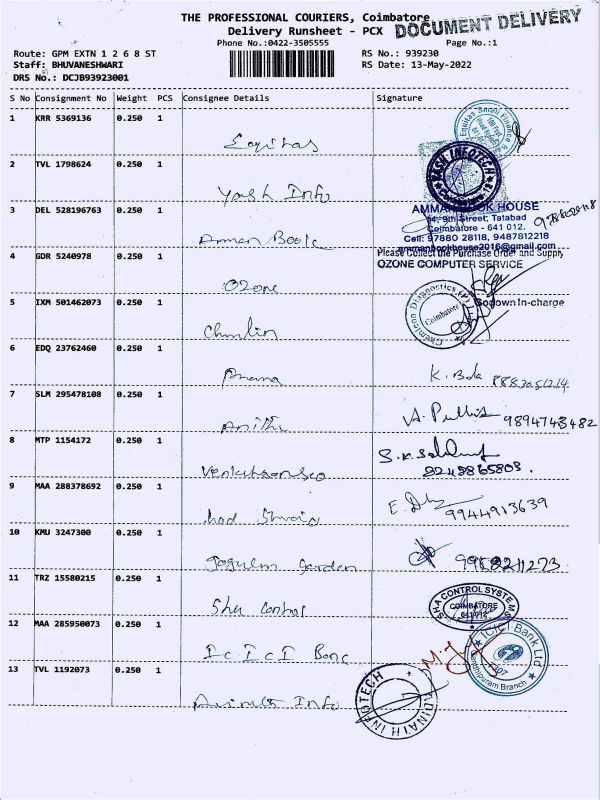 THE PROFESSIONAL COURIERS, Coimbatore
DOCUMENT DELIVERY
Delivery Runsheet - PCX
Phone No.:0422-3505555
Page No.:1
Route: GPM EXTN 1 2 6 8 ST
RS No.: 939230
Staff: BHUVANESHWARI
RS Date: 13-May-2022
DRS No.: DCJB93923001
S No Consignment No Weight PCS Consignee Details Signature
1 KRR 5369136 0.250 1
Equitas
Equitas Small Finance
2 TVL 1798624 0.250 1
Yash Info
YASH INFOTECH
3 DEL 528196763 0.250 1
Amman Book
AMMAN BOOK HOUSE
9th Street, Tatabad
Coimbatore - 641 012.
Cell: 97880 28118, 9487812218
ammanbookhouse2016@gmail.com
4 GDR 5240978 0.250 1
Ozone
Please Collect the Purchase Order and Supply
OZONE COMPUTER SERVICE
Godown In-charge
5 IXM 501462073 0.250 1
Chemicon Diagnostics (P) Ltd
Coimbatore
6 EDQ 23762460 0.250 1
K. Bala
7 SLM 295478108 0.250 1
9894743482
8 MTP 1154172 0.250 1
9 MAA 288378692 0.250 1
9944913639
10 KMU 3247300 0.250 1
Gogulam Garden
11 TRZ 15580215 0.250 1
Sha Control
SHA CONTROL SYSTEMS
COIMBATORE
641 012
12 MAA 285950073 0.250 1
ICICI Banc
ICICI Bank Ltd.
Gandhipuram Branch
13 TVL 1192073 0.250 1
Info
DINATH INFOTECH